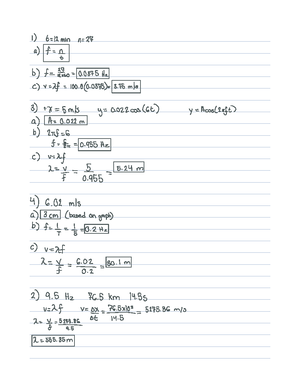 1) t=12 min n=27
a) f = n/t
b) f = 27/720 = 0.0375 Hz
c) v = λf = 100.0(0.0375) = 3.75 m/s
3) +x = 5 m/s y = 0.022cos(6t) y = Acos(2πft)
a) A = 0.022 m
b) 2πf = 6
f = 6/2π = 0.955 Hz
c) v = λf
λ = v/f = 5/0.955 = 5.24 m
4) 6.02 m/s
a) 3 cm (based on graph)
b) f = 1/T = 1/5 = 0.2 Hz
c) v = λf
λ = v/f = 6.02/0.2 = 30.1 m
2) 9.5 Hz 76.5 km 14.5s
v = λf v = Δx/Δt = 76.5x10³/14.5 = 5275.86 m/s
λ = v/f = 5275.86/9.5
λ = 555.35 m